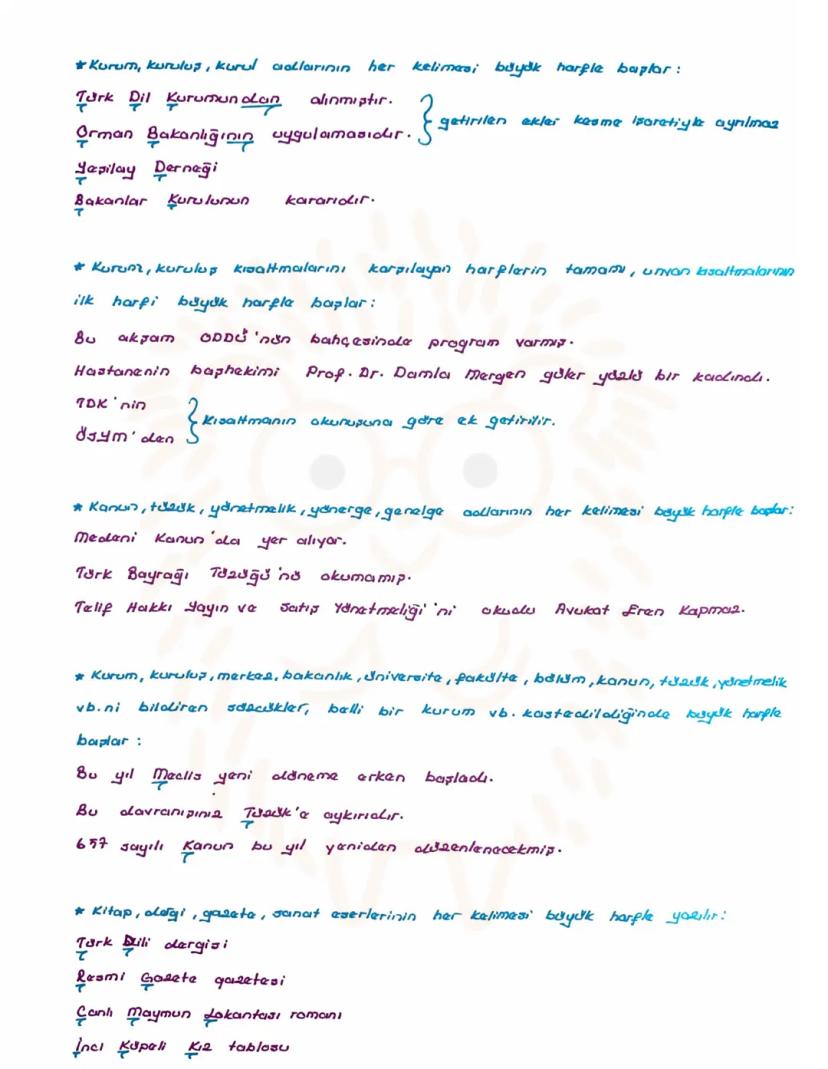 * Kurum, kuruluş, kurul adlarının her kelimesi büyük harfle başlar :
Türk Dil Kurumundan alınmıştır.
} getirilen ekler kesme işaretiyle ayrılmaz
Orman Bakanlığının uygulamasıdır.
Yeşilay Derneği
Bakanlar Kurulunun kararıdır.
* Kurum, kuruluş kısaltmalarını karşılayan harflerin tamamı, unvan kısaltmalarının
ilk harfi büyük harfle başlar :
Bu akşam ODDÜ'nün bahçesinde program varmış.
Hastanenin başhekimi Prof. Dr. Damla Mergen güler yüzlü bir kadındı.
TDK'nin
} Kısaltmanın okunuşuna göre ek getirilir.
ÖSYM'den
* Kanun, tüzük, yönetmelik, yönerge, genelge adlarının her kelimesi büyük harfle başlar :
Medeni Kanun'da yer alıyor.
Türk Bayrağı Tüzüğü'nü okumamış.
Telif Hakkı Yayın ve Satış Yönetmeliği'ni okudu Avukat Eren Kapmaz.
* Kurum, kuruluş, merkez, bakanlık, üniversite, fakülte, bölüm, kanun, tüzük, yönetmelik
vb.ni bildiren sözcükler, belli bir kurum vb. kastedildiğinde büyük harfle
başlar :
Bu yıl Meclis yeni döneme erken başladı.
Bu davranışınız Tüzük'e aykırıdır.
657 sayılı Kanun bu yıl yeniden düzenlenecekmiş.
* Kitap, dergi, gazete, sanat eserlerinin her kelimesi büyük harfle yazılır :
Türk Dili dergisi
Resmi Gazete gazetesi
Canlı Maymun Lokantası romanı
İnci Küpeli Kız tablosu